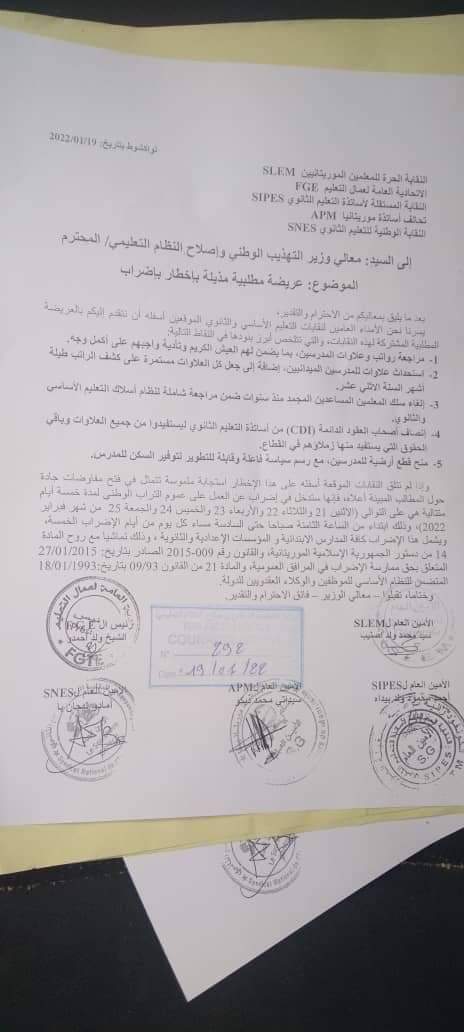 نواكشوط بتاريخ: 2022/01/19
النقابة الحرة للمعلمين الموريتانيين SLEM
الاتحادية العامة لعمال التعليم FGE
النقابة المستقلة لأساتذة التعليم الثانوي SIPES
تحالف أساتذة موريتانيا APM
النقابة الوطنية للتعليم الثانوي SNES
إلى السيد: معالي وزير التهذيب الوطني وإصلاح النظام التعليمي/ المحترم
الموضوع: عريضة مطلبية مذيلة بإخطار بإضراب
بعد ما يليق بمعاليكم من الاحترام والتقدير،
يسرنا نحن الأمناء العامين لنقابات التعليم الأساسي والثانوي الموقعين أسفله أن نتقدم إليكم بالعريضة
المطلبية المشتركة لهذه النقابات، والتي تتلخص أبرز بنودها في النقاط التالية:
1- مراجعة رواتب وعلاوات المدرسين، بما يضمن لهم العيش الكريم وتأدية واجبهم على أكمل وجه.
2- استحداث علاوات للمدرسين الميدانيين، إضافة إلى جعل كل العلاوات مستمرة على كشف الراتب طيلة
أشهر السنة الاثني عشر.
3- إلغاء سلك المعلمين المساعدين المجمد منذ سنوات ضمن مراجعة شاملة لنظام أسلاك التعليم الأساسي
والثانوي.
4- إنصاف أصحاب العقود الدائمة (CDI) من أساتذة التعليم الثانوي ليستفيدوا من جميع العلاوات وباقي
الحقوق التي يستفيد منها زملاؤهم في القطاع.
5- منح قطع أرضية للمدرسين، مع رسم سياسة فاعلة وقابلة للتطوير لتوفير السكن للمدرس.
وإذا لم تتلق النقابات الموقعة أسفله على هذا الإخطار استجابة ملموسة تتمثل في فتح مفاوضات جادة
حول المطالب المبينة أعلاه، فإنها ستدخل في إضراب عن العمل على عموم التراب الوطني لمدة خمسة أيام
متتالية هي على التوالي (الاثنين 21 والثلاثاء 22 والأربعاء 23 والخميس 24 والجمعة 25 من شهر فبراير
2022)، وذلك ابتداء من الساعة الثامنة صباحا حتى السادسة مساء كل يوم من أيام الإضراب الخمسة،
ويشمل هذا الإضراب كافة المدارس الابتدائية و المؤسسات الإعدادية والثانوية ، وذلك تماشيا مع روح المادة
14 من دستور الجمهورية الإسلامية الموريتانية، والقانون رقم 009-2015 الصادر بتاريخ: 27/01/2015
المتعلق بحق ممارسة الإضراب في المرافق العمومية، والمادة 21 من القانون 09/93 بتاريخ:18/01/1993
المتضمن للنظام الأساسي للموظفين والوكلاء العقدويين للدولة.
وختاما، تقبلوا – معالي الوزير – فائق الاحترام والتقدير.
الأمين العام لSLEM
سيد محمد ولد
N° 292
Date 19/01/22
الشيخ ولد أحمدو
FGTE
الأمين العام لSIPES
أحمد محمود ولد بيداه
الأمين العام لAPM
سيداتي محمد
الأمين العام لSNES
أمادو تيجان با
S.G
SIPES
Syndicat National